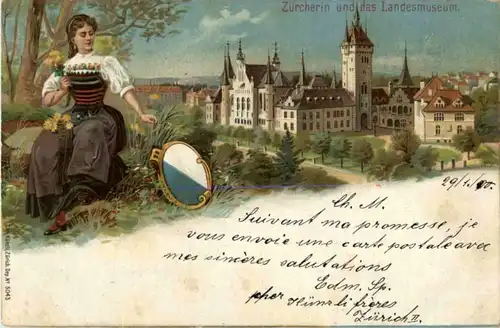 Zürcherin und das Landesmuseum.
29/1.00.
Ch. M.
Suivant ma promesse, je
vous envoie une carte postale avec
mes sincères salutations
Edm. Sp.
Hürli frères
Zürich II.
Zürich, Dep. Nº 5043